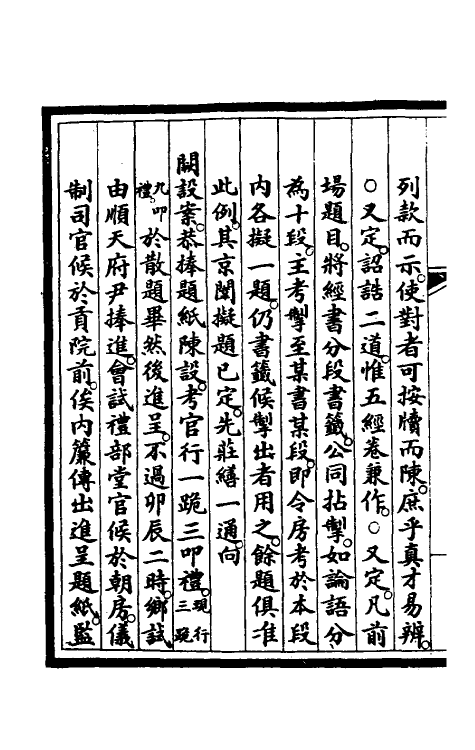 列款而示。使對者可按牘而陳。庶乎真才易辨。
○又定。詔誥二道。惟五經卷兼作。○又定。凡前
場題目。將經書分段書籤。公同拈掣。如論語分
為十段。主考掣至某書某段。即令房考於本段
內各擬一題。仍書籤候掣出者用之。餘題俱准
此例。其京闈擬題已定。先莊繕一通。向
闕設案。恭捧題紙陳設。考官行一跪三叩禮。現行三跪
九叩禮。於散題畢。然後進呈。不過卯辰二時。鄉試
由順天府尹捧進。會試禮部堂官候於朝房。儀
制司官候於貢院前。俟內簾傳出進呈題紙。監